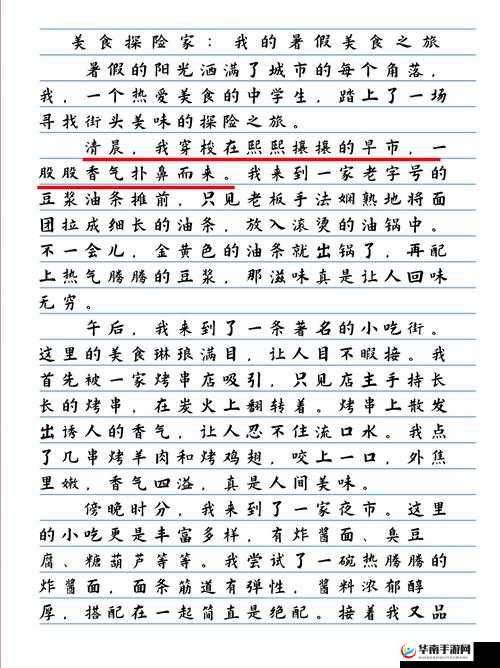 美食探险家：我的暑假美食之旅
暑假的阳光洒满了城市的每个角落，
我，一个热爱美食的中学生，踏上了一场
寻找街头美味的探险之旅。
清晨，我穿梭在熙熙攘攘的早市，一
股股香气扑鼻而来。我来到一家老字号的
豆浆油条摊前，只见老板手法娴熟地将面
团拉成细长的油条，放入滚烫的油锅中。
不一会儿，金黄色的油条就出锅了，再配
上热气腾腾的豆浆，那滋味真是让人回味
无穷。
午后，我来到了一条著名的小吃街。
这里的美食琳琅满目，让人目不暇接。我
首先被一家烤串店吸引，只见店主手持长
长的烤串，在炭火上翻转着。烤串上散发
出诱人的香气，让人忍不住流口水。我点
了几串烤羊肉和烤鸡翅，咬上一口，外焦
里嫩，香气四溢，真是人间美味。
傍晚时分，我来到了一家夜市。这里
的小吃更是丰富多样，有炸酱面、臭豆
腐、糖葫芦等等。我尝试了一碗热腾腾的
炸酱面，面条筋道有弹性，酱料浓郁醇
厚，搭配在一起简直是绝配。接着我又品
华南手游网